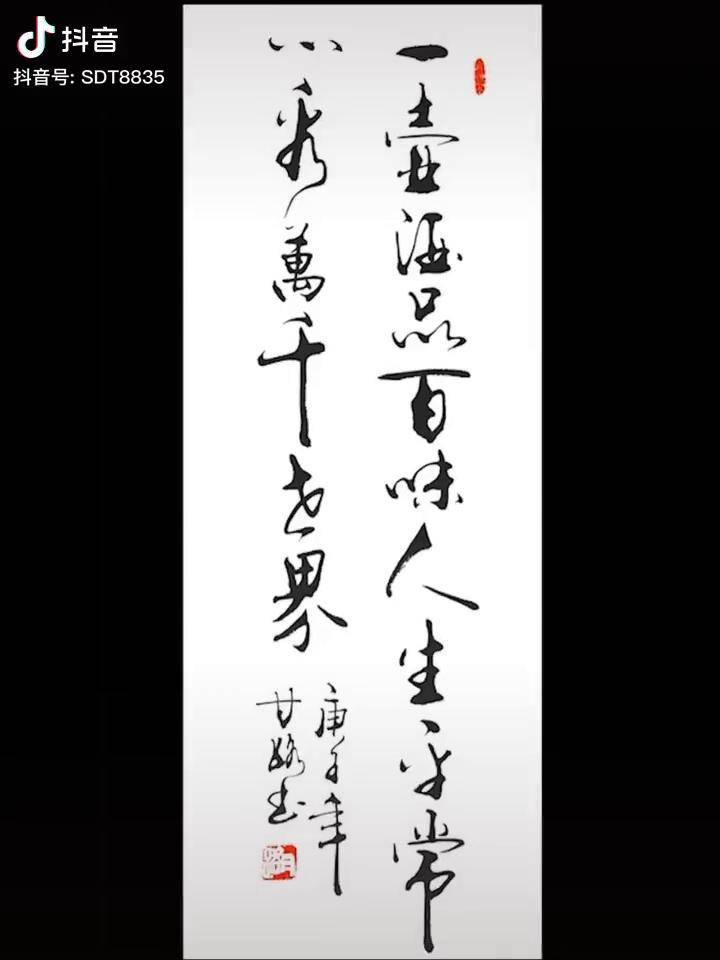 抖音
抖音号: SDT8835
一壶酒品百味人生平常
心看萬千世界
庚子年
甘路书